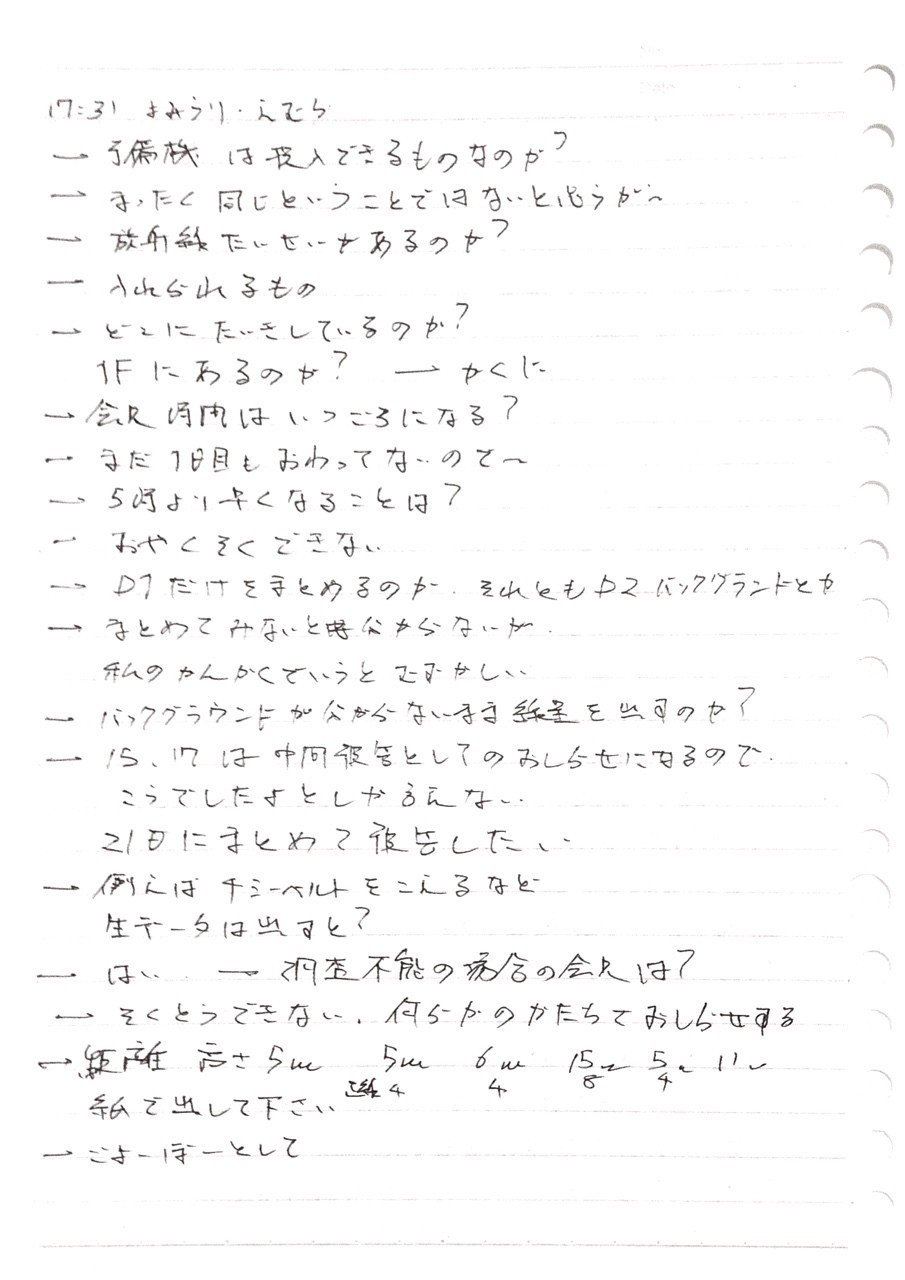 17:31 よみうり・えむら
→ 予備機は投入できるものなのか?
→ まったく同じということではないと思うが〜
→ 放射線たいせいがあるのか?
→ 入れられるもの
→ どこにたいきしているのか?
1Fにあるのか? → かくに
→ 会見時間はいつごろになる?
→ まだ1日目もおわってないので〜
→ 5時より早くなることは?
→ おやくそくできない
→ D1だけをまとめるのか、それともD2バックグランドとか
→ まとめてみないと分からないが、
私のかんかくでいうとむずかしい
→ バックグラウンドが分からないまま線量を出すのか?
→ 15、17は中間報告としてのおしらせになるので、
こうでしたよとしか言えない、
21日にまとめて報告したい
→ 例えば千シーベルトをこえるなど
生データは出すと?
→ はい、 → 調査不能の場合の会見は?
→ そくとうできない、何らかのかたちでおしらせする
→ 距離 高さ5m 5m 6m 15 5 11
4 4 8 4
紙で出して下さい
→ ごよーぼーとして